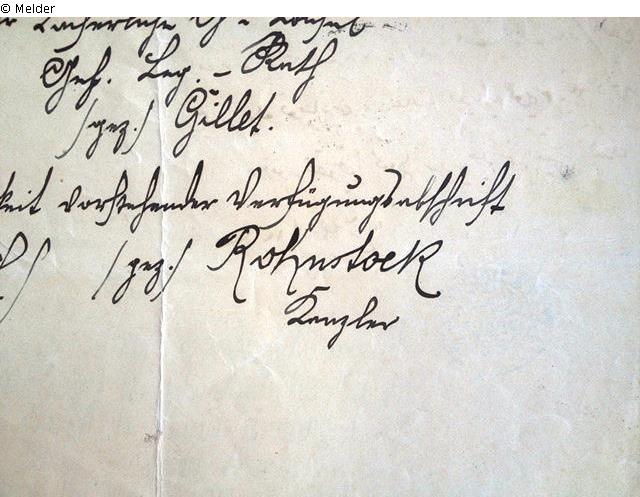 © Melder
Kaiserliche
Geh. Leg. - Rath
/gez./ Gillet.
keit vorstehender Verfügungsabschrift
/gez./ Rohnstock
Kanzler